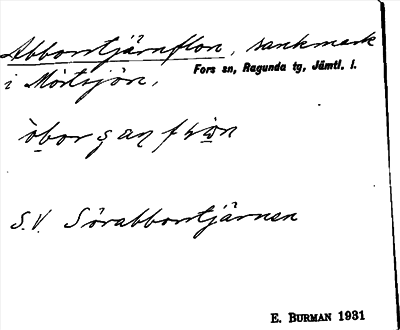 Abborrtjärnflon, sankmark
i Mörtsjön,
Fors sn, Ragunda tg, Jämtl. l.
S.V. Sörabborrtjärnen
E. BURMAN 1931